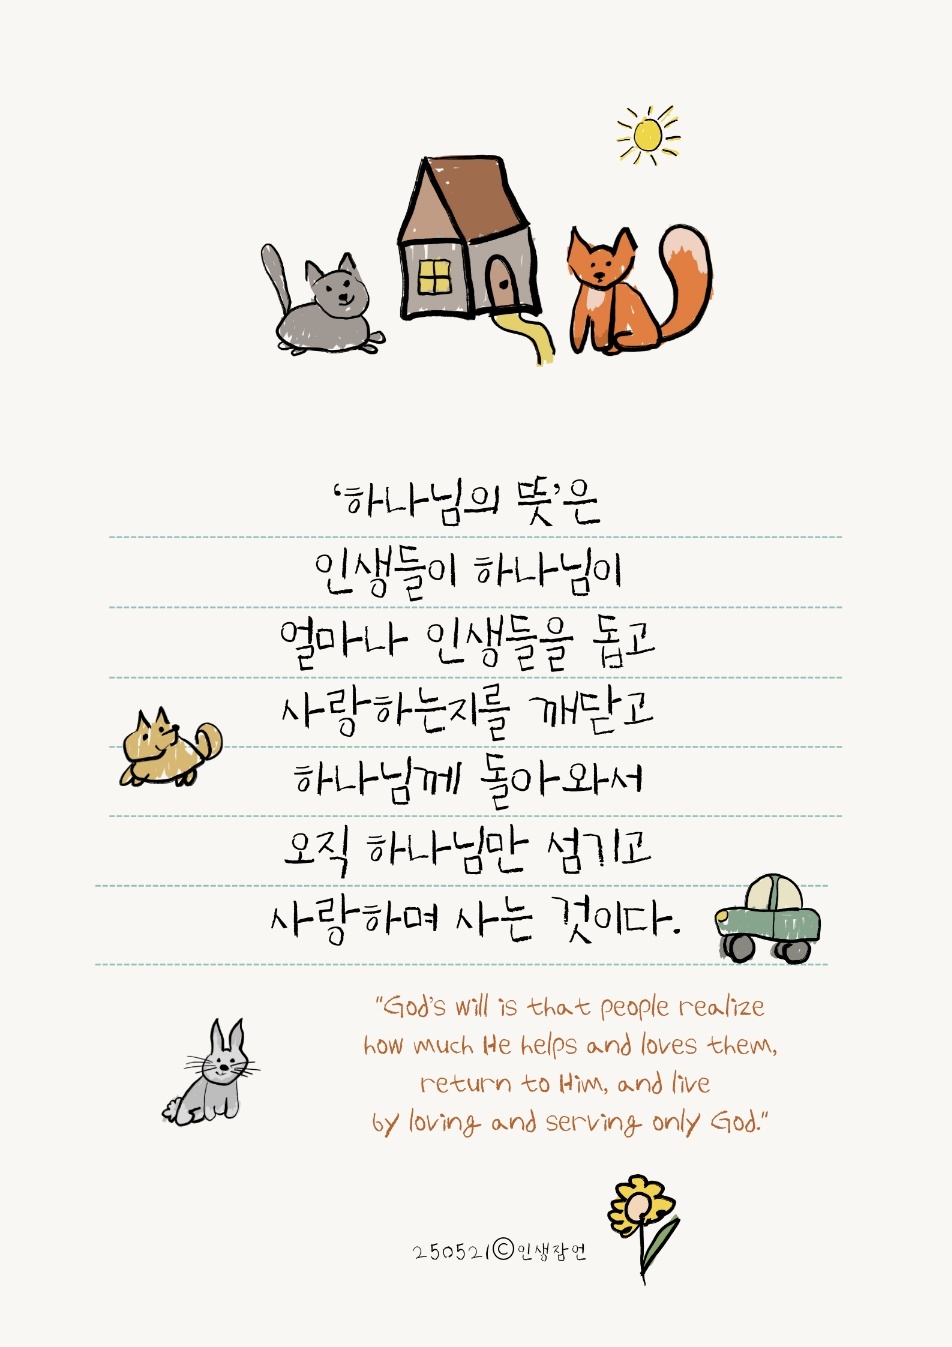 ‘하나님의 뜻’은
인생들이 하나님이
얼마나 인생들을 돕고
사랑하는지를 깨닫고
하나님께 돌아와서
오직 하나님만 섬기고
사랑하며 사는 것이다.
"God's will is that people realize
how much He helps and loves them,
return to Him, and live
by loving and serving only God."
250521©인생잠언